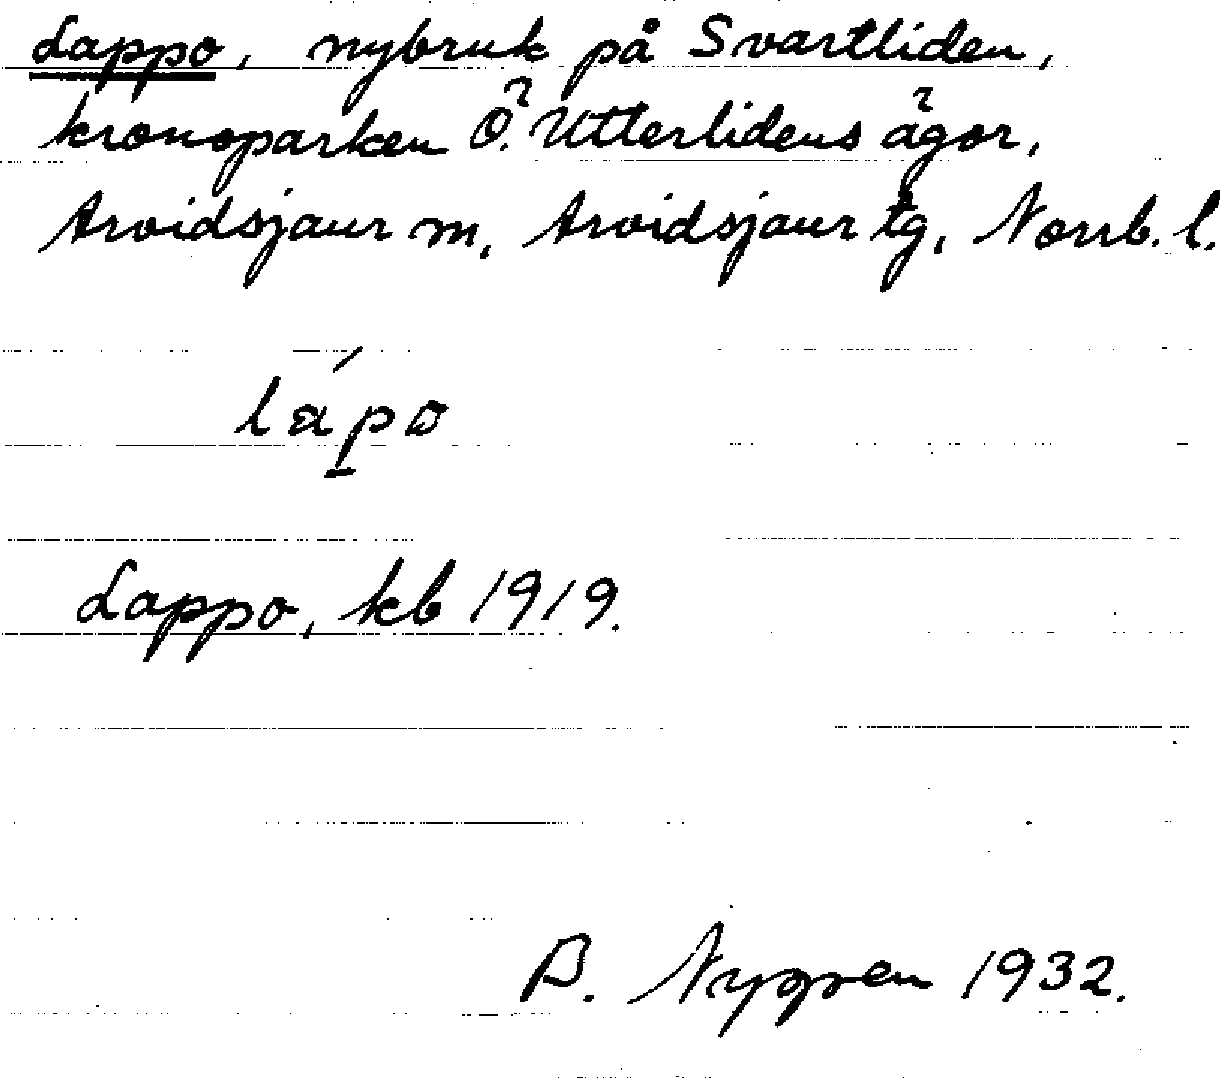 Lappo, nybruk på Svartliden,
kronoparken Ö. Utterlidens ägor,
Arvidsjaur sn, Arvidsjaur tg, Norrb. l.
lápo
Lappo, kb 1919.
B. Nygren 1932.